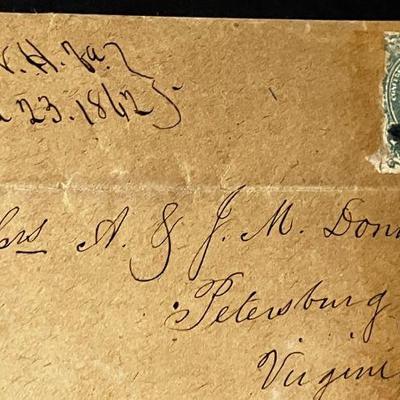 . H. Va.
23. 1862
rs A. & J. M. Donn
Petersburg
Virgini